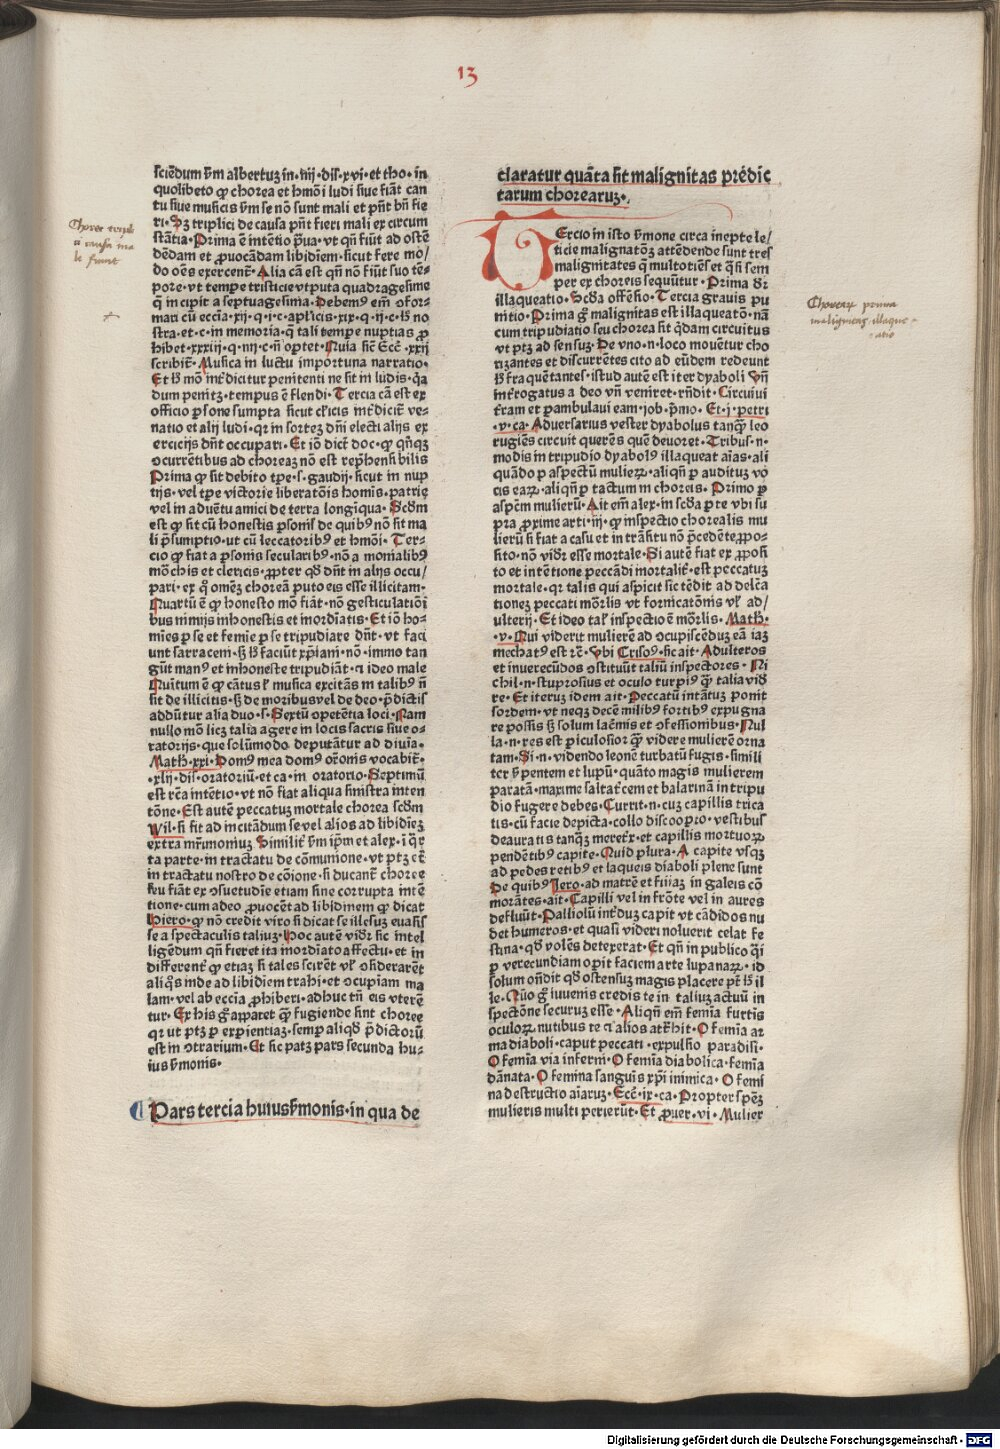 13
sciēdum ẜm albertuz in·iiij·dis·xvi·et tho·in
quolibeto ꝙ chorea et hmōi ludi siue fiāt can
tu siue musicis ẜm se nō sunt mali et pn̄t bn̄ fie
ri·Sꝫ triplici de causa pn̄t fieri mali ex circum
stātia·Prima ē intētio praua·vt qn̄ fiūt ad ostē
dēdam et ꝓuocādam libidiem·sicut fere mo/
do oēs exercent̄·Alia cā est qn̄ nō fiūt suo tē⸗
pore·vt tempe tristicie vt puta quadragesime
q̄ in cipit a septuagesima·Debemꝰ em̄ ↄfor⸗
mari cū eccīa·xij·q·i·c·apl̄icis·xix·q·ij·c·lꝫ no
stra·et·c·in memoria·q̄ tali tempe nuptias ꝓ
hibet·xxxiij·q·iiij·c·n̄ oꝑtet·Quia sic̄ Ecc̄·xxij
scribit̄·Musica in luctu importuna narratio·
Et lꝫ mō int̓dicitur penitenti ne sit in ludis·q̄a
dum penitꝫ·tempus ē flendi·Tercia cā est ex
officio ꝑsone sumpta sicut cl̓icis int̓dicit̄ ve⸗
natio et alij ludi·qꝛ in sortez dn̄i electi alijs ex
ercicijs dn̄t occupari·Et iō dict̄ doc·ꝙ qn̄qꝫ
ↄcurrētibus ad choreaz nō est rep̄hensibilis
Prima ꝙ sit debito tp̄e·s·gaudij·sicut in nup
tijs·vel tp̄e victorie liberatōis homīs·patrie
vel in aduētu amici de terra longīqua·Scd̄m
est ꝙ sit cū honestis ꝑsonis de quibꝰ nō sit ma
li p̄sumptio·vt cū leccatoribꝰ et hmōi·Ter⸗
cio ꝙ fiat a ꝑsonis secularibꝰ·nō a monialibꝰ
mōchis et clericis·ꝓpter qd̄ dn̄t in alijs occu/
pari·ex q̊ omēz choreā puto eis esse illicitam·
Quartū ē ꝙ honesto mō fiāt·nō gesticulatiōi
bus nimijs inhonestis et inordīatis·Et iō ho⸗
mīes ꝑ se et femīe ꝑ se tripudiare dn̄t·vt faci
unt sarraceni·sꝫ lꝫ faciūt xp̄iani·nō·immo tan
gūt manꝰ et inhoneste tripudiāt·⁊ ideo male
Quītum ē ꝙ cātus l̓ musica excitās in talibꝰ n̄
sit de illicitis·sꝫ de moribus vel de deo·p̄dictis
addūtur alia duo·s·Sextū ↄpetētia loci·Nam
nullo mō licꝫ talia agere in locis sacris siue o⸗
ratorijs·que solūmodo deputātur ad diuīa·
Math·xxi·Domꝰ mea domꝰ or̄onis vocabit̄·
·xlij·dis·oratoriū·et ca·in oratorio·Septimū
est rc̄a intētio·vt nō fiat aliqua sinistra inten
tōne·Est autē peccatuz mortale chorea scd̄m
Wil·si fit ad incitādum se vel alios ad libidiez
extra mr̄imoniuz Similit̓ ẜm ip̄m et alex·i q̄r
ta parte·in tractatu de cōmunione·vt ptꝫ et̄
in tractatu nostro de cōione·si ducant̄ choree
seu fiāt ex ↄsuetudīe etiam sine corrupta intē
tione·cum adeo ꝓuocēt ad libidinem ꝙ dicat
Hiero·ꝙ nō credit viro si dicat se illesuz euasis
se a spectaculis taliuz·Hoc autē vid̓r sic intel
ligēdum qn̄ fieret ita inordīato affectu·et in
different̓ ꝙ etiaz si tales scirēt vl̓ ↄsiderarēt
aliq̊s inde ad libidiem trahi·et ↄcupīam ma
lam·vel ab eccīa ꝓhiberi·adhuc tn̄ eis vterē
tur·Ex his g̊ apparet ꝙ fugiende sint choree
qꝛ ut ptꝫ ꝑ exꝑientiaz·semꝑ aliqd̓ p̄dictorū
est in ↄtrarium·Et sic patꝫ pars secunda hu⸗
ius ẜmonis·
Pars tercia huius ẜmonis·in qua de
claratur quāta sit malignitas predic
tarum chorearuz·
Tercio in isto ẜmone circa inepte le/
ticie malignatōꝫ attēdende sunt tres
malignitates q̄ multotiēs et q̄si sem
per ex choreis sequūtur·Prima d̓r
illaqueatio·Scd̄a offēsio·Tercia grauis pu
nitio·Prima g̊ malignitas est illaqueatō·nā
cum tripudiatio seu chorea sit q̄dam circuitus
vt ptꝫ ad sensuz·De vno·n·loco mouētur cho
rizantes et discurrētes cito ad eūdem redeunt
lꝫ fraquētantes·istud autē est iter dyaboli Vn̄
int̓rogatus a deo vn̄ veniret·rn̄dit·Circuiui
t̓ram et ꝑambulaui eam·job·p̄mo·Et·j·petri
·v·ca·Aduersarius vester dyabolus tanqꝫ leo
rugiēs circuit querēs quē deuoret·Tribus·n·
modis in tripudio dyabolꝰ illaqueat aīas·ali
quādo ꝑ aspectū mulieꝝ·aliqn̄ ꝑ auditum vo
cis eaꝝ·aliqn̄ ꝑ tactum in choreis·Primo ꝑ
aspcm̄ mulierū·Ait em̄ alex·in scd̄a ꝑte vbi su
pra ꝓxime arti·iij·ꝙ inspectio chorealis mu
lierū si fiat a casu et in trāsitu nō p̄cedēte ꝓpo⸗
sito·nō vid̓r esse mortale·Si autē fiat ex ꝓposi
to et intētione peccādi mortalit̓·est peccatuz
mortale·qꝛ talis qui aspicit sic tēdit ad delcā
tionez peccati mōrlis vt fornicatōnis vl̓ ad/
ulterij·Et ideo tal̓ inspectio ē mōrlis·Math·
·v·Qui viderit mulierē ad ↄcupiscēduz eā iaꝫ
mechatꝰ est rc̄·Vbi Crisoꝰ·sic ait·Adulteros
et inuerecūdos ↄstituūt taliū inspectores·Ni
chil·n·stuprosius et oculo turpiꝰ ꝙ̄ talia vid̓
re·Et iteruz idem ait·Peccatū intātuz ponit
sordem·vt neqꝫ decē milibꝰ fortibꝰ expugna
re possis sꝫ solum lac̄mis et ↄfessionibus·Nul
la·n·res est ꝑiculosior ꝙ̄ videre mulierē orna
tam·Si·n·videndo leonē turbatū fugis·simili
ter s̓pentem et lupū·quāto magis mulierem
paratā·maxime saltat̓cem et balarinā in tripu
dio fugere debes·Currit·n·cuz capillis trica
tis·cū facie depicta·collo discoopto·vestibus
deauratis tanqꝫ meret̓x·et capillis mortuoꝝ
pendētibꝰ capite·Quid plura·A capite vsqꝫ
ad pedes retibꝰ et laqueis diaboli plene sunt
De quibꝰ Jero·ad matrē et filiaz in galeis cō
morātes·ait·Capilli vel in frōte vel in aures
defluūt·Palliolū int̓duz capit vt cādidos nu
det humeros·et quasi videri noluerit celat fe
stina·qd̓ volēs detexerat·Et qn̄ in publico q̄si
ꝑ verecundiam oꝑit faciem arte lupanaꝝ·id
solum on̄dit qd̓ ostensuz magis placere pt̄ lꝫ il
le·Quo g̊ iuuenis credis te in taliuz actuū in
spectōne securuz esse·Aliqn̄ em̄ femīa furtis
oculoꝝ nutibus te ⁊ alios at̓hit·O femīa ar
ma diaboli·caput peccati·expulsio paradisi·
O femīa via inferni·O femīa diabolica·femīa
dānata·O femina sanguīs xp̄i inimica·O femi
na destructio aīaruz·Ecc̄·ix·ca·Propter spēꝫ
mulieris multi perierūt·Et ꝓuer·vi·Mulier
Digitalisierung gefördert durch die Deutsche Forschungsgemeinschaft - DFG